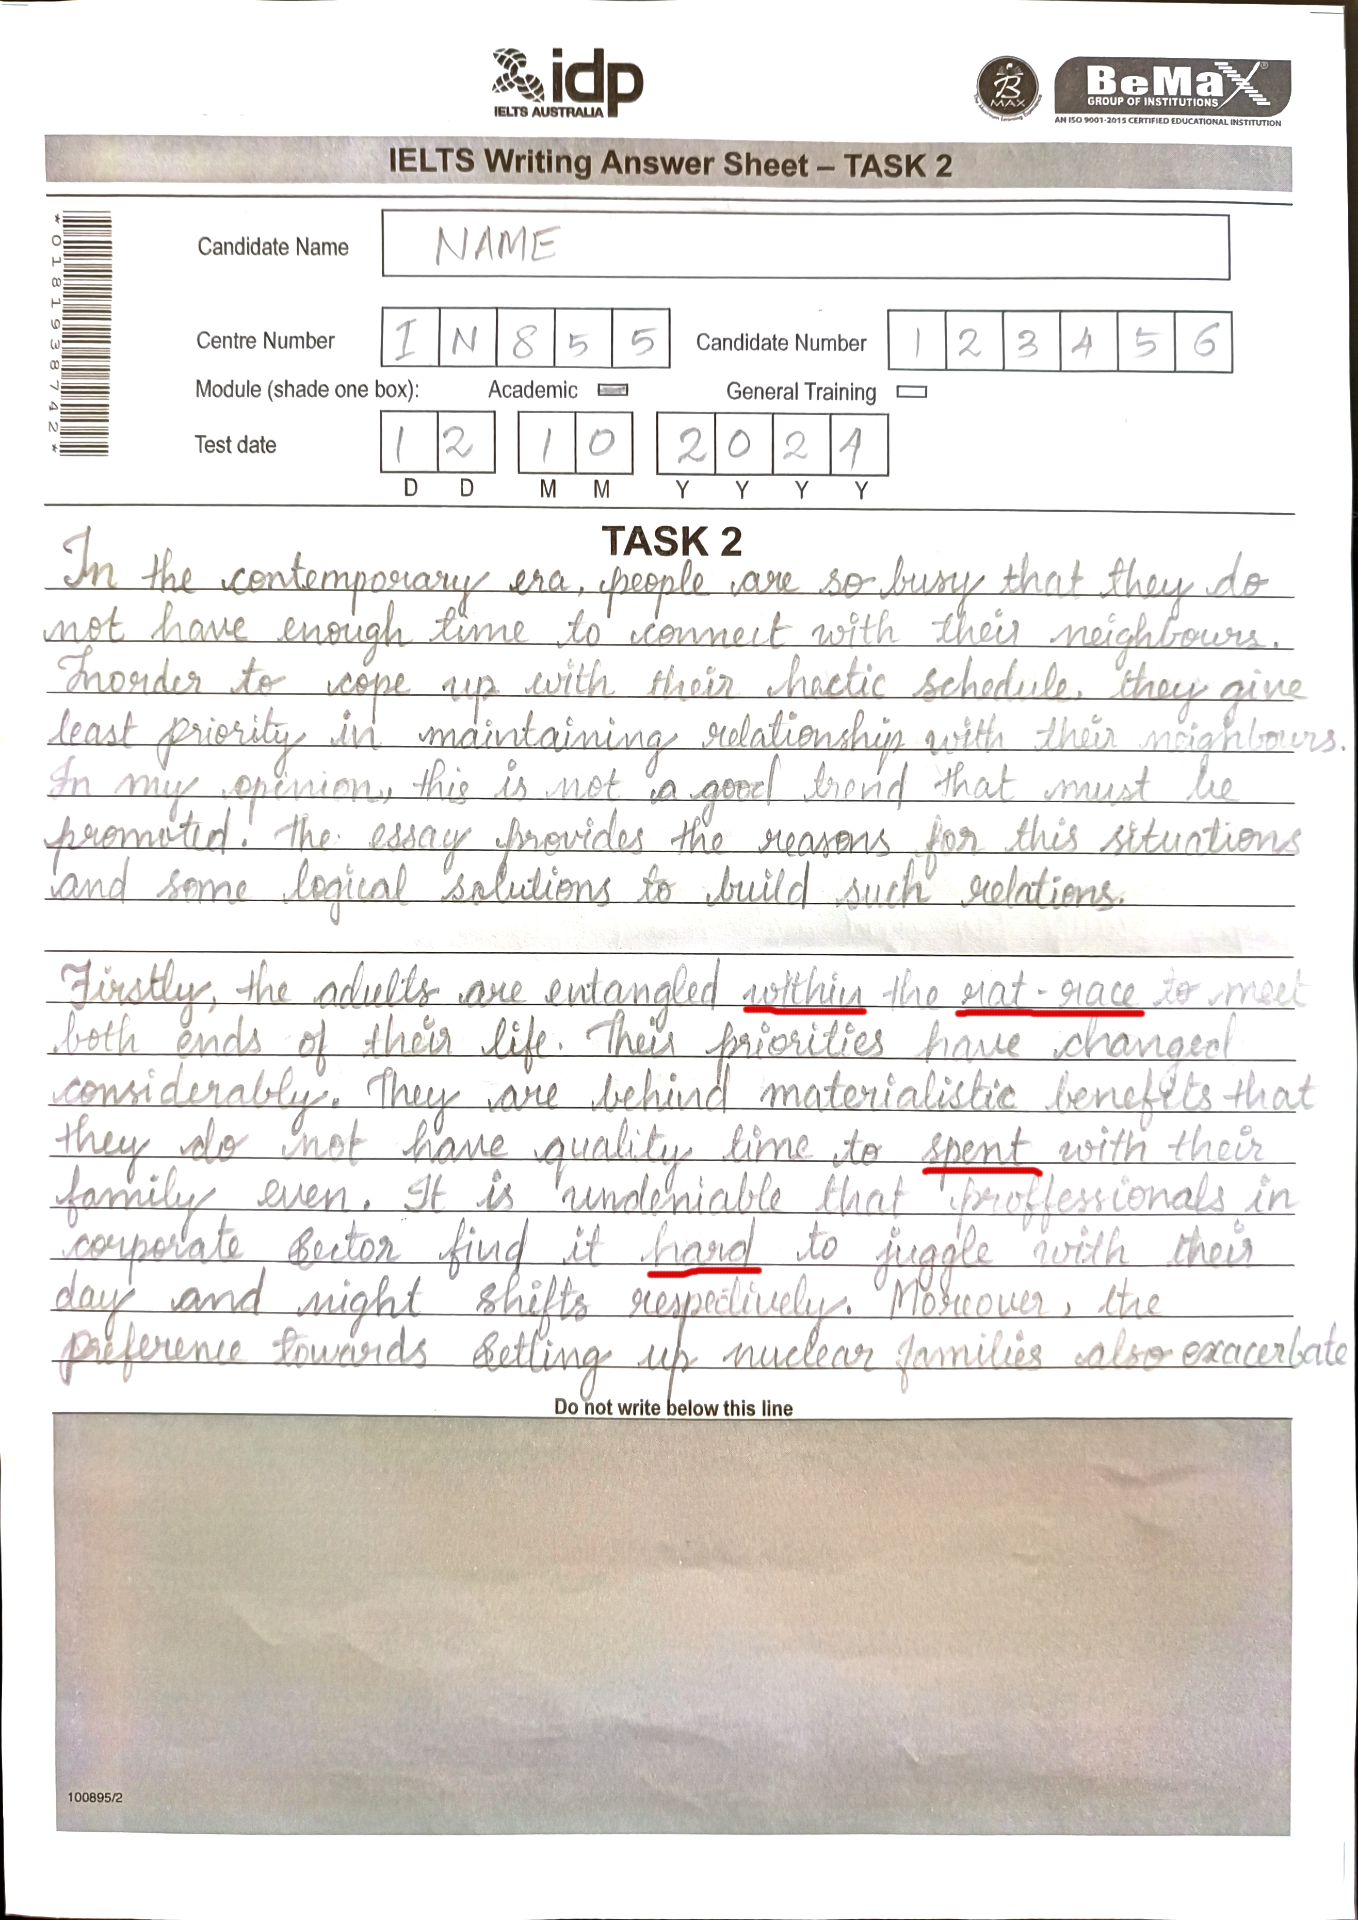 idp
IELTS AUSTRALIA
B
MAX
BeMax
GROUP OF INSTITUTIONS
AN ISO 9001-2015 CERTIFIED EDUCATIONAL INSTITUTION
IELTS Writing Answer Sheet – TASK 2
*0181938742*
Candidate Name NAME
Centre Number I N 8 5 5 Candidate Number 1 2 3 4 5 6
Module (shade one box): Academic General Training
Test date 1 2 1 0 2 0 2 1
D D M M Y Y Y Y
TASK 2
In the contemporary era, people are so busy that they do
not have enough time to connect with their neighbours.
Inorder to cope up with their hectic schedule, they give
least priority in maintaining relationship with their neighbours.
In my opinion, this is not a good trend that must be
promoted. The essay provides the reasons for this situations
and some logical solutions to build such relations.
Firstly, the adults are entangled within the rat-race to meet
both ends of their life. Their priorities have changed
considerably. They are behind materialistic benefits that
they do not have quality time to spent with their
family even. It is undeniable that proffessionals in
corporate sector find it hard to juggle with their
day and night shifts respectively. Moreover, the
preference towards setting up nuclear families also exacerbate
Do not write below this line
100895/2